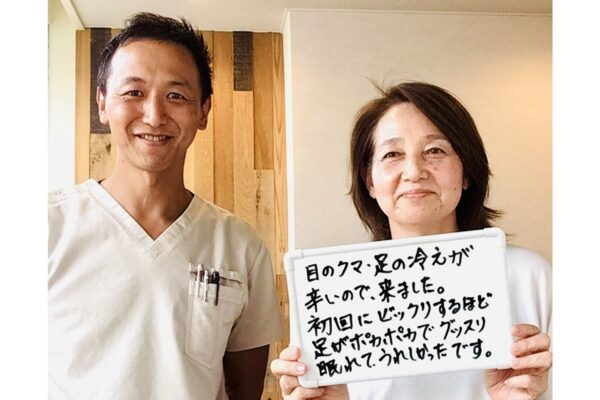 目のクマ・足の冷えが
辛いので、来ました。
初回にビックリするほど
足がポカポカでグッスリ
眠れて、うれしかったです。